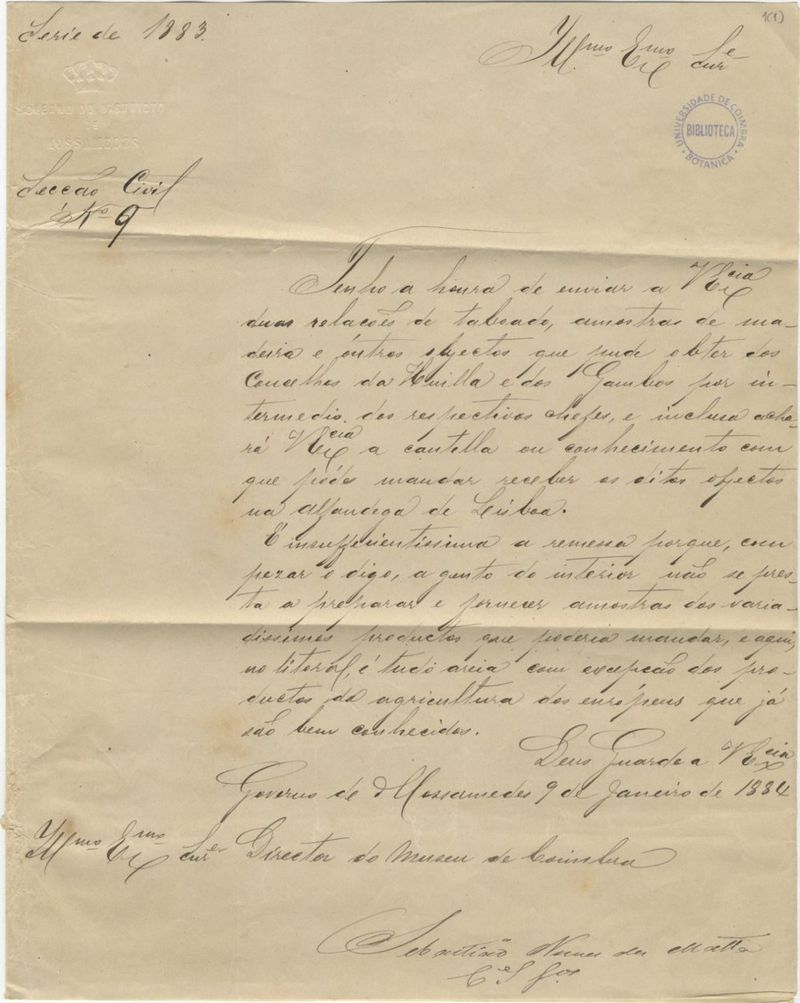 1(1)
Serie de 1883.
Illmo Exmo Snr
GOVERNO DO DISTRICTO
DE
MOSSAMEDES
UNIVERSIDADE DE COIMBRA
BIBLIOTECA
BOTANICA
Secção Civil
No 9
Tenho a honra de enviar a VExcia
duas relacões de taboado, amostras de ma-
deira e outros objectos que pude obter dos
Concelhos da Huilla e dos Gambos por in-
termedio dos respectivos chefes, e inclusa acha-
rá VExcia a cautella ou conhecimento com
que póde mandar receber os ditos objectos
na Alfandega de Lisboa.
É insufficientissima a remessa porque, com
pezar o digo, a gente do interior não se pres-
ta a preparar e fornecer amostras dos varia-
dissimos productos que poderia mandar, e aqui,
no litoral, é tudo areia com excepção dos pro-
ductos da agricultura dos európeus que já
são bem conhecidos.
Deus Guarde a VExcia
Governo de Mossamedes 9 de Janeiro de 1884
Illmo Exmo Snr Director do Museu de Coimbra
Sebastião Nunes da Matta